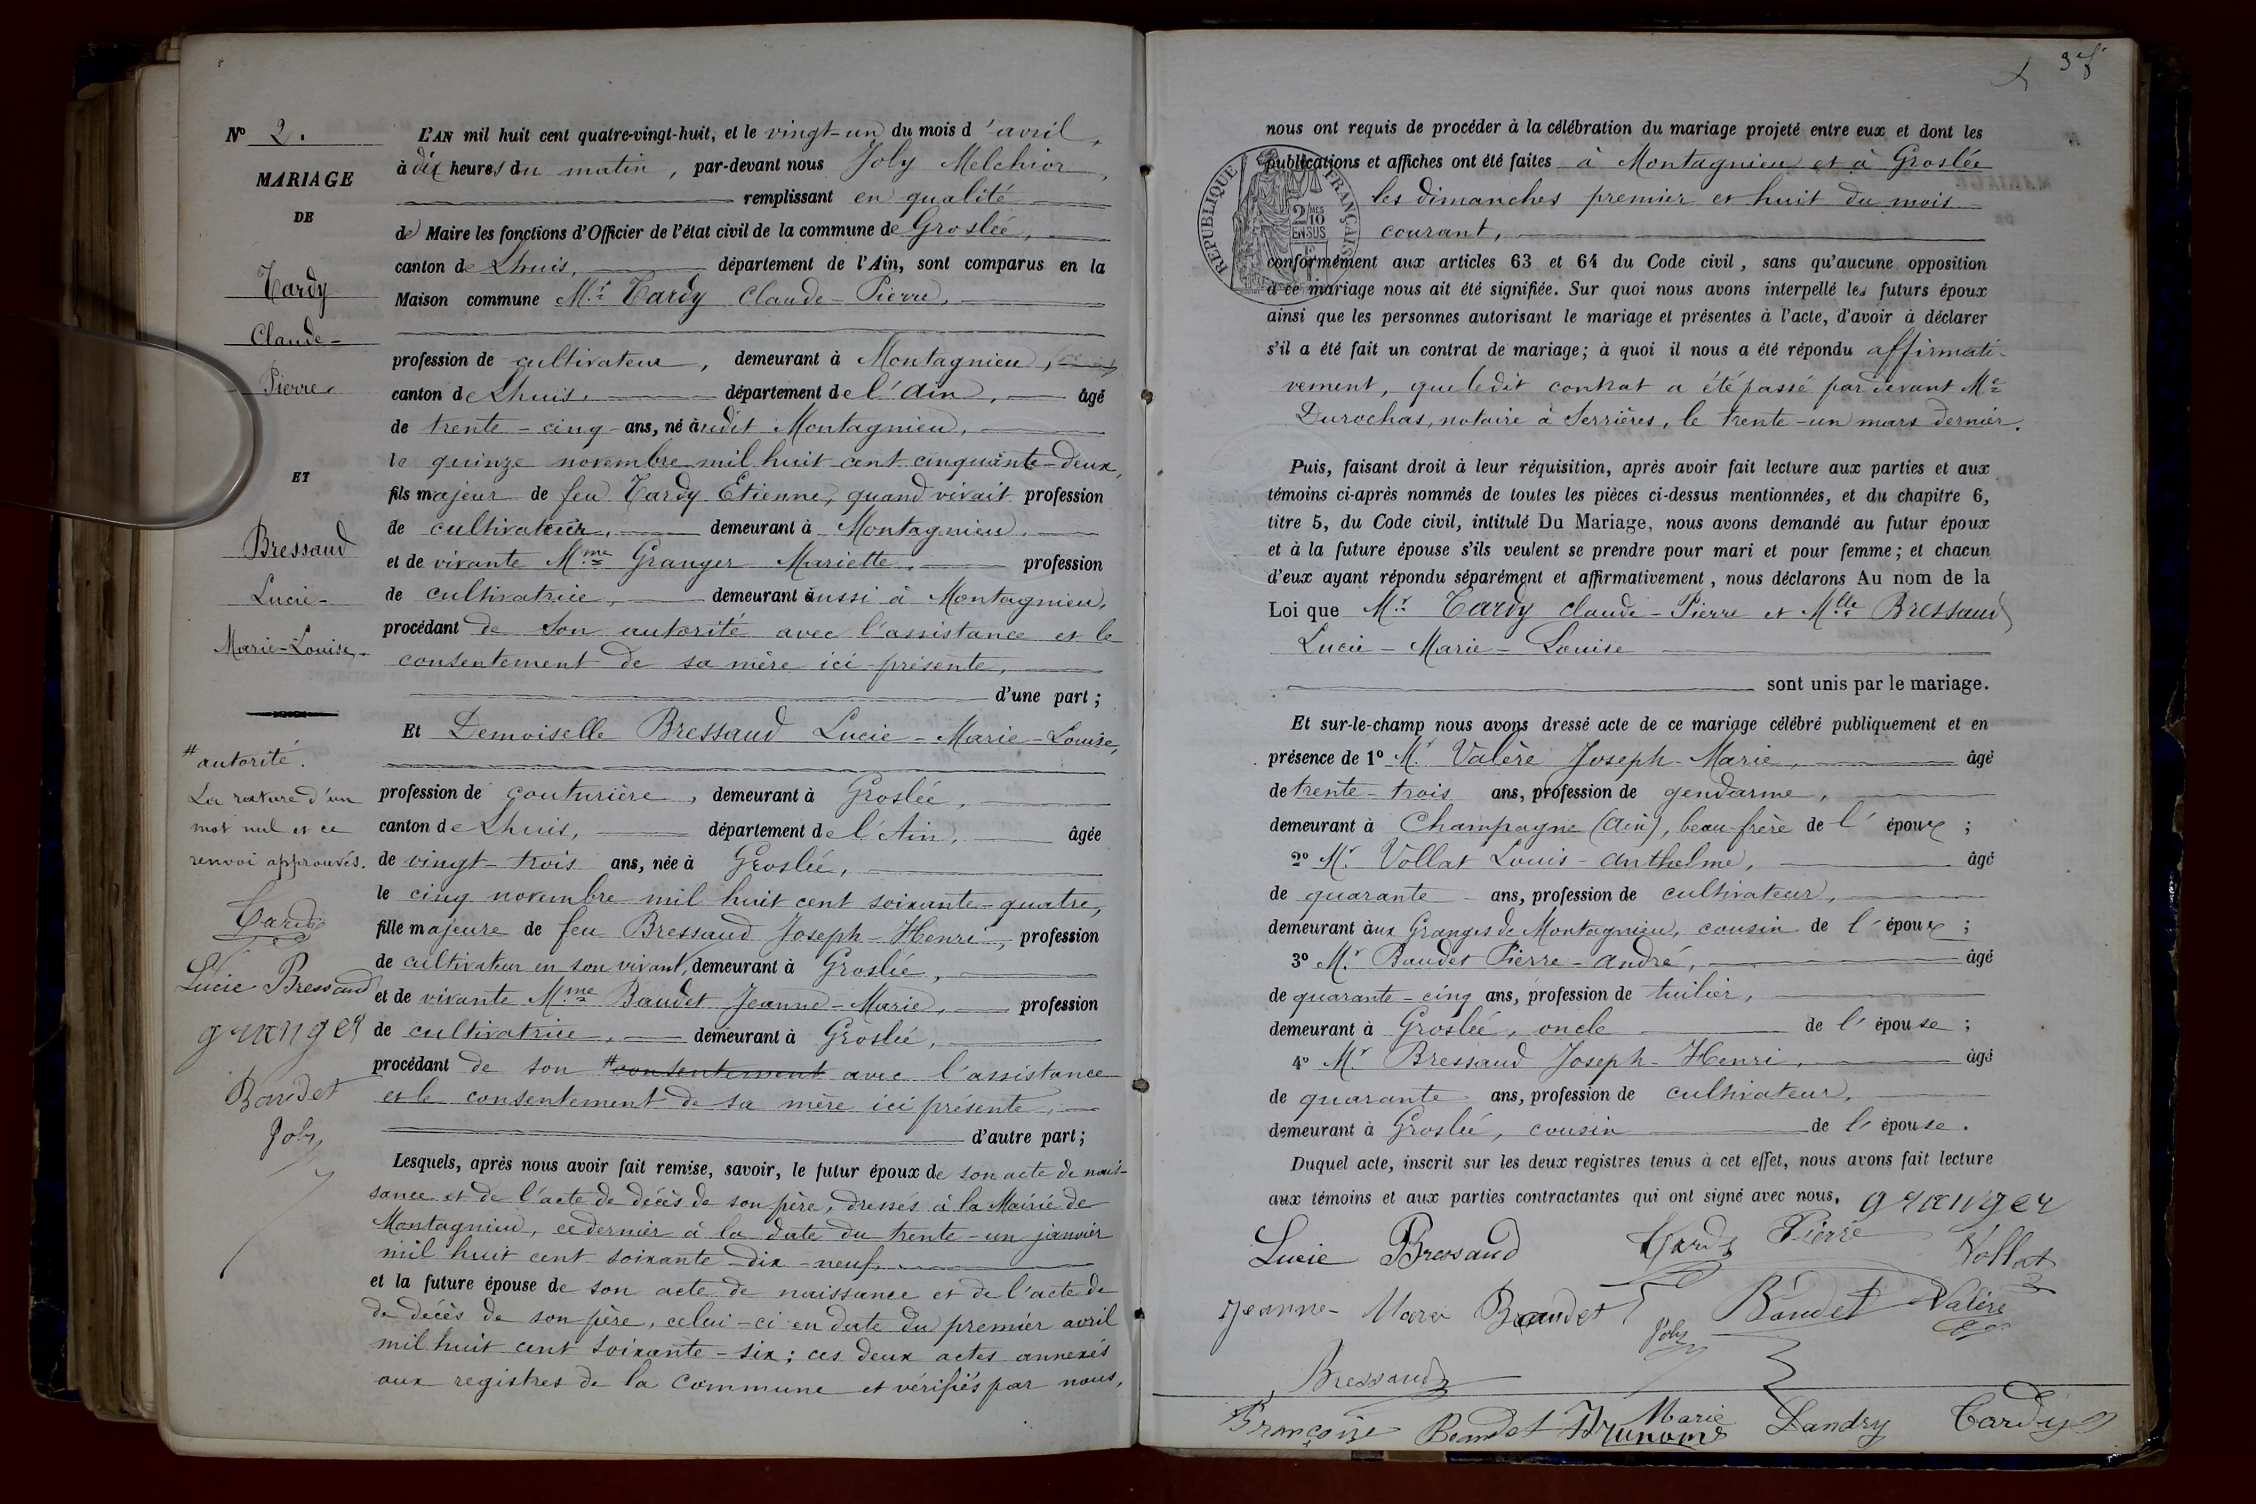 N° 2.
MARIAGE
DE
Tardy
Claude-
Pierre
ET
Bressaud
Lucie-
Marie-Louise.
# autorité.
La rature d'un
mot nul et ce
renvoi approuvés.
Tardy
Lucie Bressaud
granger
Baudet
Joly
L'AN mil huit cent quatre-vingt-huit, et le vingt-un du mois d'avril,
à dix heures du matin, par-devant nous Joly Melchior,
remplissant en qualité
de Maire les fonctions d'Officier de l'état civil de la commune de Groslée,
canton de Lhuis, département de l'Ain, sont comparus en la
Maison commune Mr Tardy Claude-Pierre,
profession de cultivateur, demeurant à Montagnieu,
canton de Lhuis, département de l'Ain, âgé
de trente-cinq ans, né audit Montagnieu,
le quinze novembre mil huit cent cinquante-deux,
fils majeur de feu Tardy Etienne, quand vivait profession
de cultivateur, demeurant à Montagnieu.
et de vivante Mme Granger Mariette, profession
de cultivatrice, demeurant aussi à Montagnieu,
procédant de son autorité avec l'assistance et le
consentement de sa mère ici présente,
d'une part;
Et Demoiselle Bressaud Lucie-Marie-Louise,
profession de couturière, demeurant à Groslée,
canton de Lhuis, département de l'Ain, âgée
de vingt-trois ans, née à Groslée,
le cinq novembre mil huit cent soixante-quatre,
fille majeure de feu Bressaud Joseph-Henri, profession
de cultivateur en son vivant, demeurant à Groslée,
et de vivante Mme Baudet Jeanne-Marie, profession
de cultivatrice, demeurant à Groslée,
procédant de son # consentement avec l'assistance
et le consentement de sa mère ici présente,
d'autre part;
Lesquels, après nous avoir fait remise, savoir, le futur époux de son acte de nais-
sance et de l'acte de décès de son père, dressés à la Mairie de
Montagnieu, ce dernier à la date du trente-un janvier
mil huit cent soixante-dix-neuf,
et la future épouse de son acte de naissance et de l'acte de
de décès de son père, celui-ci en date du premier avril
mil huit cent soixante-six; ces deux actes annexés
aux registres de la Commune et vérifiés par nous,
nous ont requis de procéder à la célébration du mariage projeté entre eux et dont les
publications et affiches ont été faites à Montagnieu et à Groslée
les dimanches premier et huit du mois
courant,
RÉPUBLIQUE FRANÇAISE
2 MES
10
EN SUS
conformément aux articles 63 et 64 du Code civil, sans qu'aucune opposition
à ce mariage nous ait été signifiée. Sur quoi nous avons interpellé les futurs époux
ainsi que les personnes autorisant le mariage et présentes à l'acte, d'avoir à déclarer
s'il a été fait un contrat de mariage; à quoi il nous a été répondu affirmati-
vement, que ledit contrat a été passé pardevant Me
Durochas, notaire à Serrières, le trente-un mars dernier.
Puis, faisant droit à leur réquisition, après avoir fait lecture aux parties et aux
témoins ci-après nommés de toutes les pièces ci-dessus mentionnées, et du chapitre 6,
titre 5, du Code civil, intitulé Du Mariage, nous avons demandé au futur époux
et à la future épouse s'ils veulent se prendre pour mari et pour femme; et chacun
d'eux ayant répondu séparément et affirmativement, nous déclarons Au nom de la
Loi que Mr Tardy Claude-Pierre et Mlle Bressaud
Lucie-Marie-Louise
sont unis par le mariage.
Et sur-le-champ nous avons dressé acte de ce mariage célébré publiquement et en
présence de 1° Mr Valère Joseph-Marie, âgé
de trente-trois ans, profession de gendarme,
demeurant à Champagne (Ain), beau-frère de l'époux;
2° Mr Vollat Louis-Anthelme, âgé
de quarante ans, profession de cultivateur,
demeurant aux Granges de Montagnieu, cousin de l'époux;
3° Mr Baudet Pierre-André, âgé
de quarante-cinq ans, profession de tuilier,
demeurant à Groslée, oncle de l'épouse;
4° Mr Bressaud Joseph-Henri, âgé
de quarante ans, profession de cultivateur,
demeurant à Groslée, cousin de l'épouse.
Duquel acte, inscrit sur les deux registres tenus à cet effet, nous avons fait lecture
aux témoins et aux parties contractantes qui ont signé avec nous. granger
Lucie Bressaud Tardy Pierre Vollat
Jeanne-Marie Baudet Joly Baudet Valère
Bressaud
Françoise Baudet Marie Landry Tardy